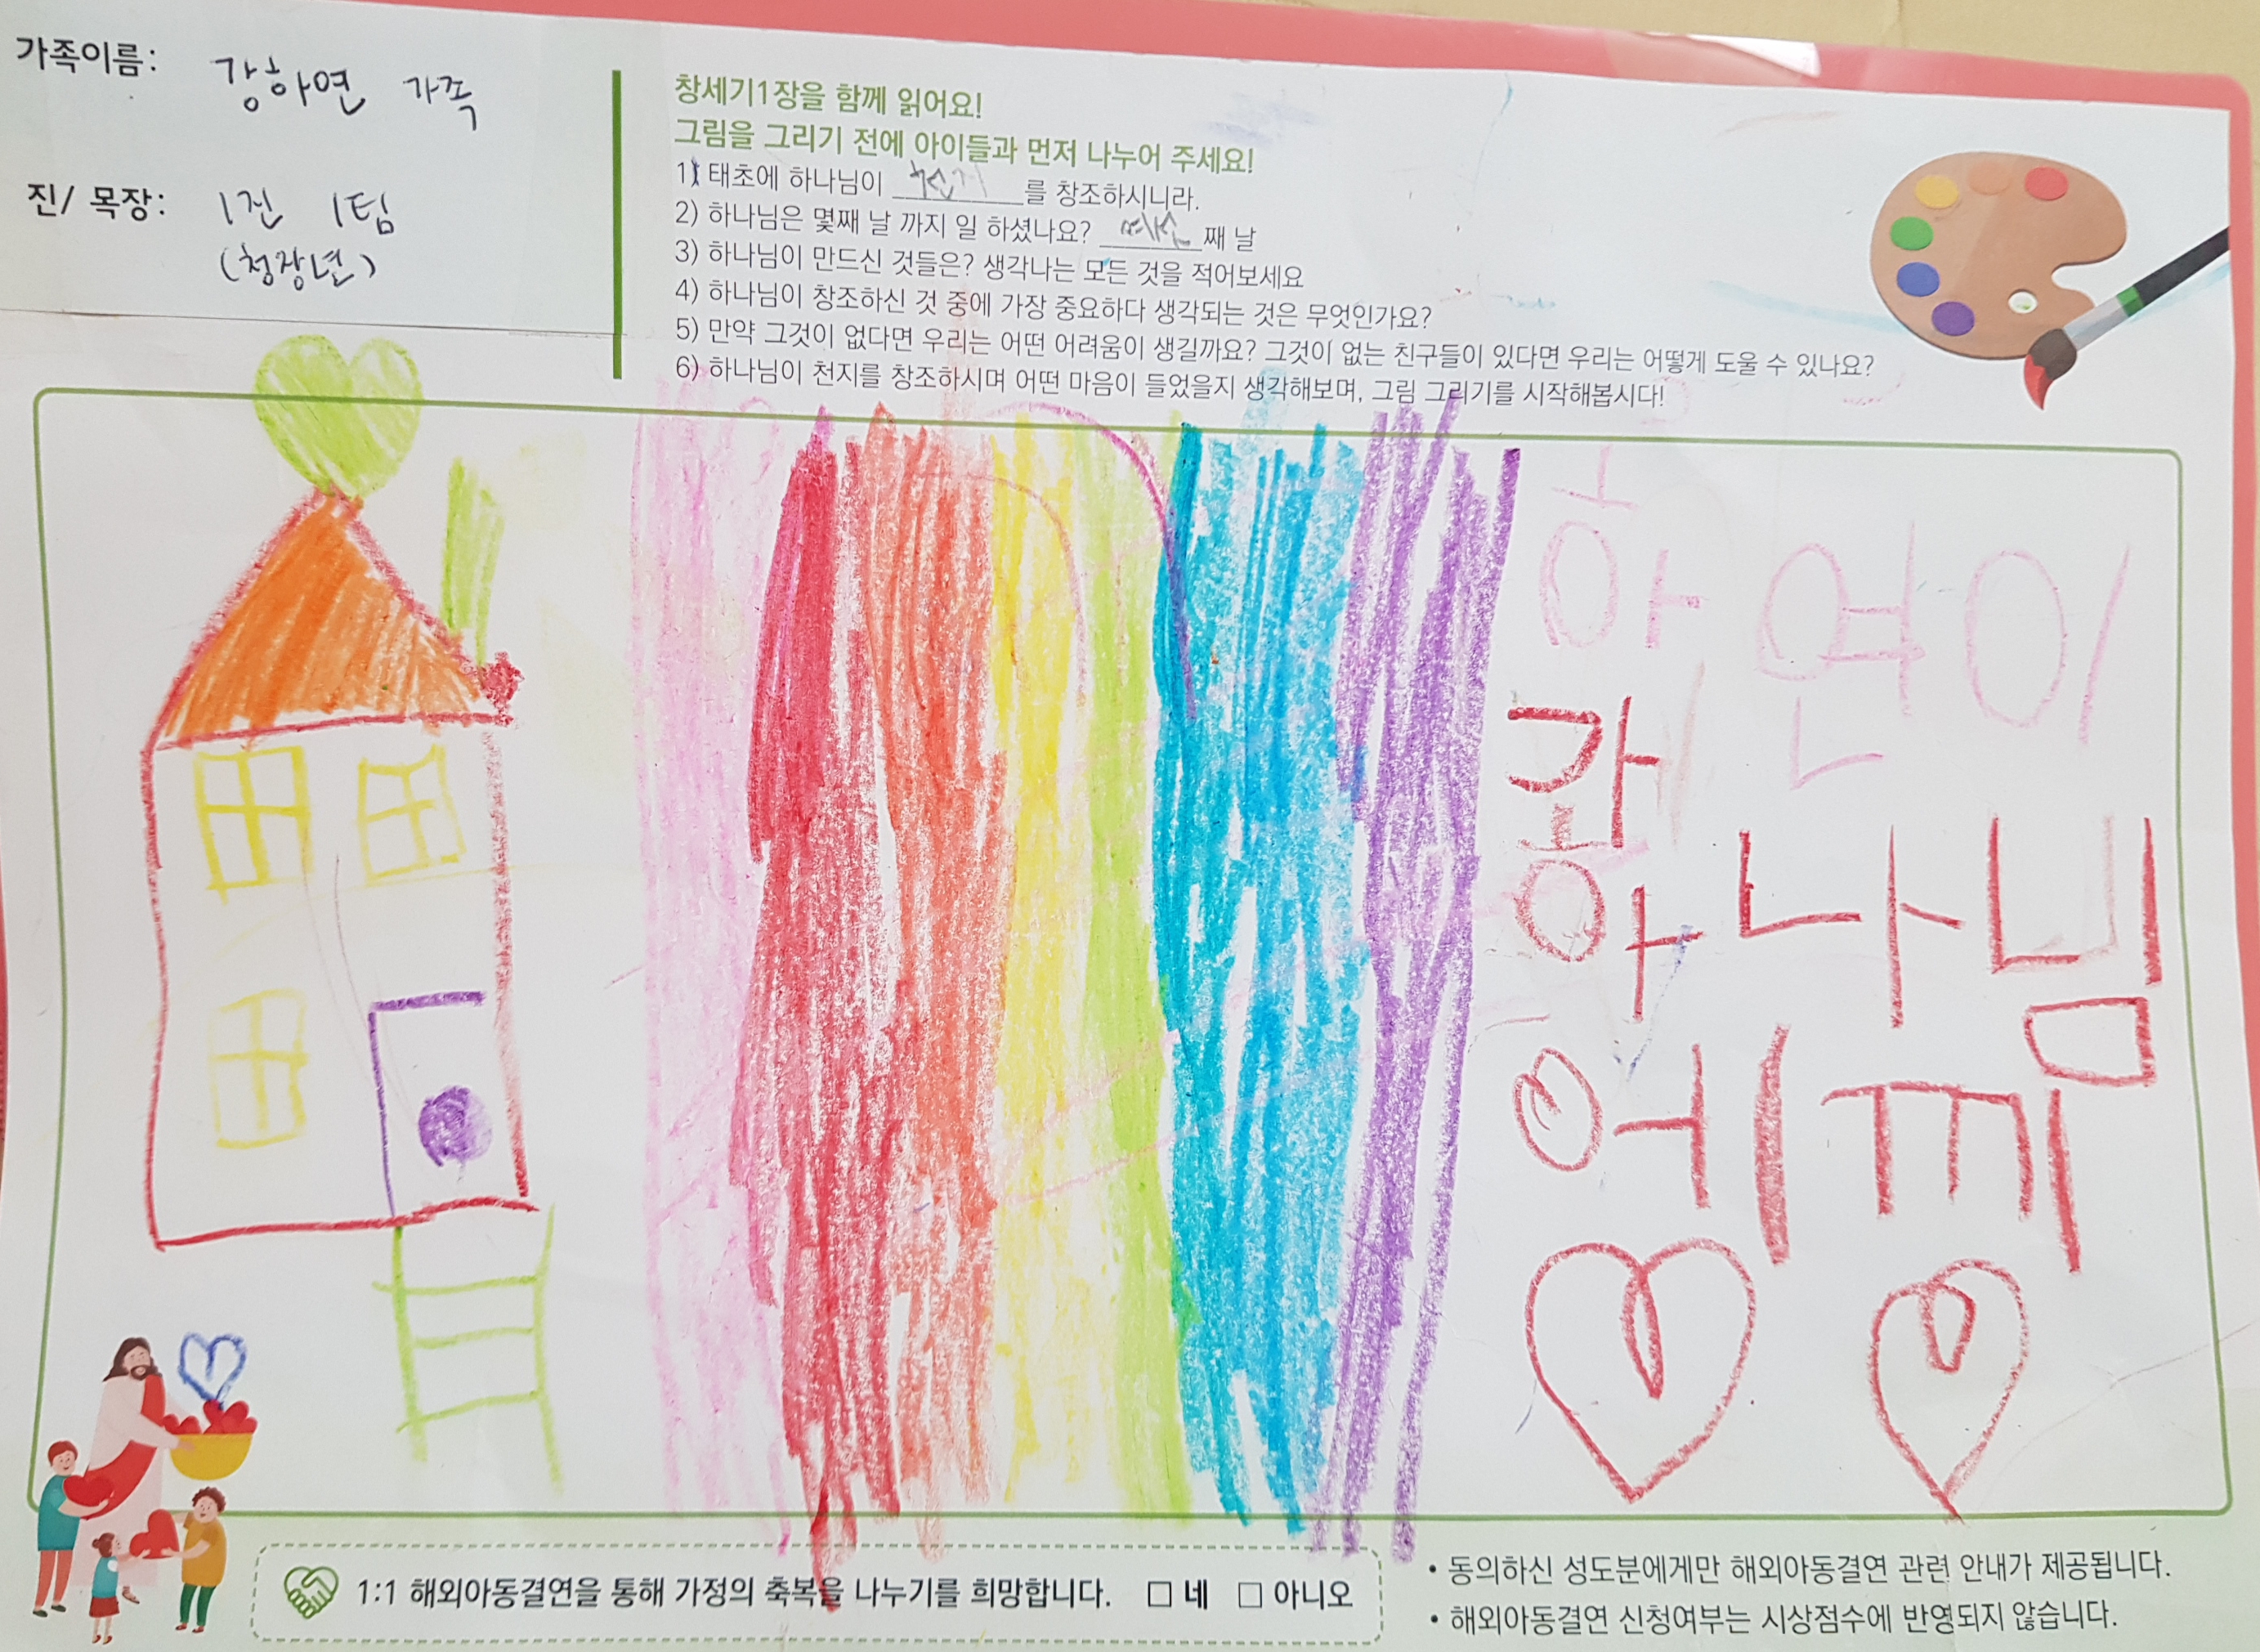 가족이름: 강하연 가족
진/ 목장: 1진 1팀
(청장년)
창세기1장을 함께 읽어요!
그림을 그리기 전에 아이들과 먼저 나누어 주세요!
1) 태초에 하나님이 천지를 창조하시니라.
2) 하나님은 몇째 날 까지 일 하셨나요? 여섯째 날
3) 하나님이 만드신 것들은? 생각나는 모든 것을 적어보세요
4) 하나님이 창조하신 것 중에 가장 중요하다 생각되는 것은 무엇인가요?
5) 만약 그것이 없다면 우리는 어떤 어려움이 생길까요? 그것이 없는 친구들이 있다면 우리는 어떻게 도울 수 있나요?
6) 하나님이 천지를 창조하시며 어떤 마음이 들었을지 생각해보며, 그림 그리기를 시작해봅시다!
하연이
가
하나님
에께
1:1 해외아동결연을 통해 가정의 축복을 나누기를 희망합니다. □ 네 □ 아니오
• 동의하신 성도분에게만 해외아동결연 관련 안내가 제공됩니다.
• 해외아동결연 신청여부는 시상점수에 반영되지 않습니다.